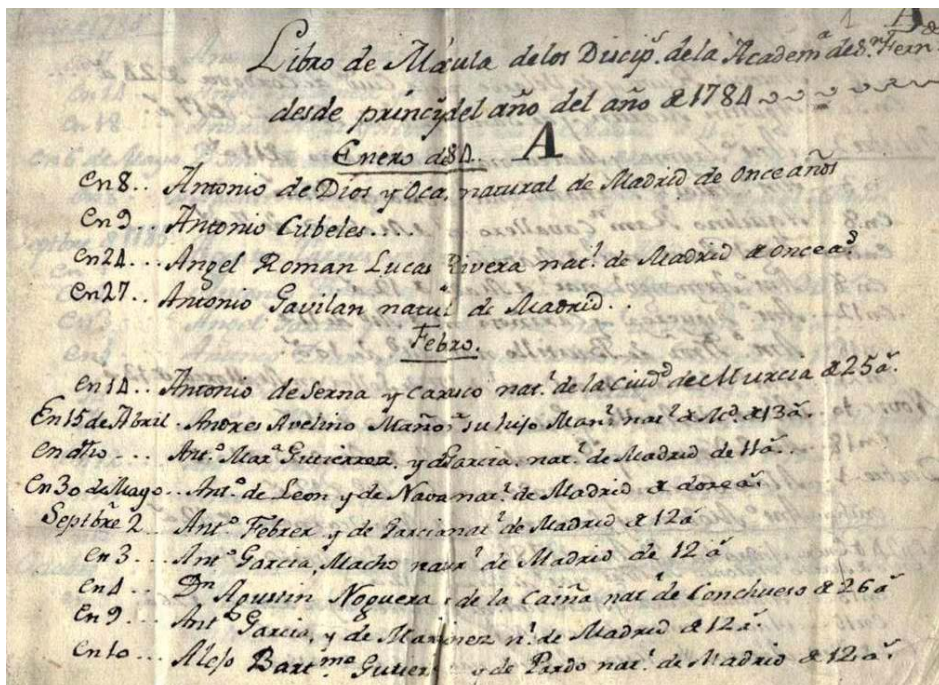 1 A
Libro de Mãula de los Discip.s de la Academ.a de S.n Fern.do
desde princip. del año del año de 1784
Enero de 84.. A
en 8.. Antonio de Dios y Oca, natural de Madrid de Once años
en 9 Antonio Cubeles.
en 24... Angel Roman Lucas Rivera nat.l de Madrid de once a.s
en 27.. Antonio Gavilan natu.l de Madrid.
Febro.
en 14.. Antonio de Serna y Caruco nat.l de la Ciud.d de Murcia de 25 a.
En 15 de Abril. Andres Avelino su hijo Man.l nat.l de M.d de 13 a.
en dho... Ant.o Mar.a Gutierrez, y de Garcia. nat.l de Madrid de 11 a..
en 30 de Mayo.. Ant.o de Leon y de Nava nat.l de Madrid de doce a.s
Septbre 2.. Ant.o Febrer y de Garcia nat.l de Madrid de 12 a
en 3... Ant.o Garcia, Macho natu.l de Madrid de 12 a
en 4... D.n Agustin Noguera, de la nat.l de Conchueso de 26 a
en 9.. Ant.o Garcia, y de Martinez n.l de Madrid de 12 a.
en 10... Alejo Bart.me Gutierr y de Pardo nat.l de Madrid de 12 a.